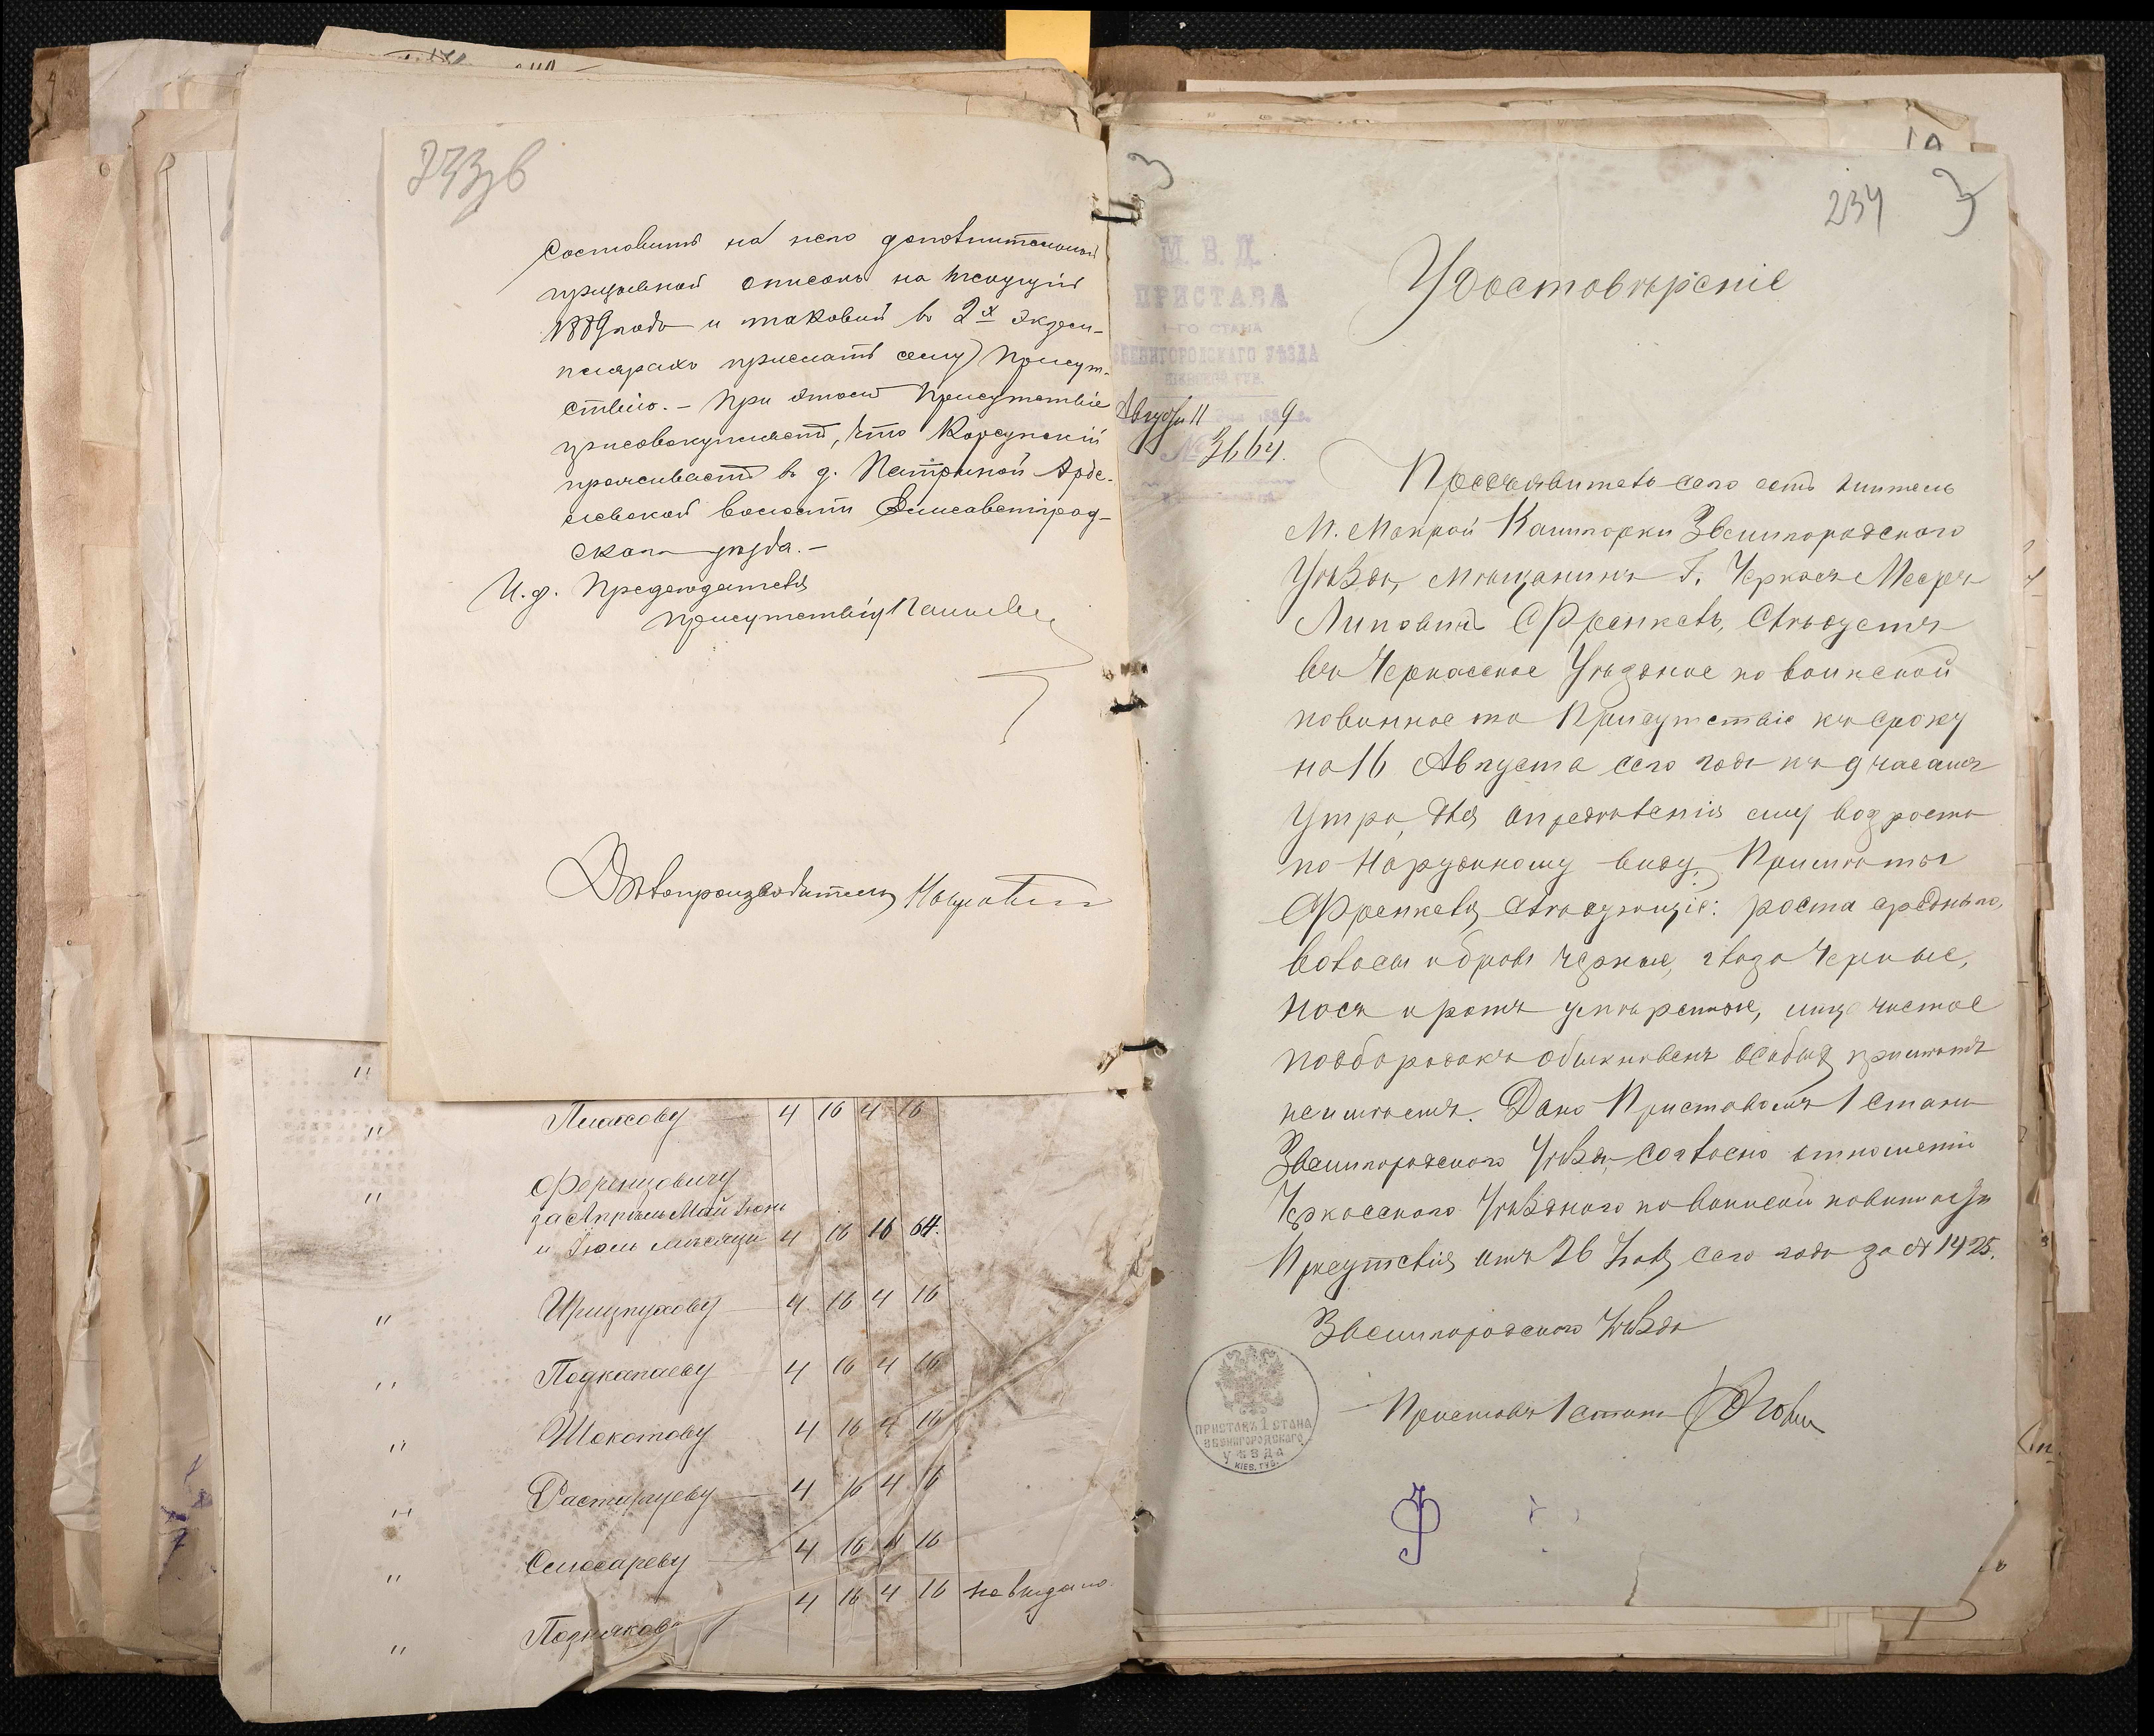 233 в
Составить на него дополнительный
призывной списокъ на текущій
1889 годъ и таковый въ 2х экзем-
плярахъ прислать сему Присут-
ствію. – При этомъ Присутствіе
присовокупляетъ, что Корсунскій
проживаетъ въ д. Петриной
волости Елисаветград-
скаго уѣзда. –
И. д. Предсѣдателя
Присутствія
Дѣлопроизводитель
" 4 16 4 16
" Ференцовичу
за Апрѣль Май Іюнь
и Іюль мѣсяцы 4 16 16 64.
" 4 16 4 16
" Подкопаеву 4 16 4 16
" Шокотову 4 16 4 16
" 4 16 4 16
" Слюсареву 4 16 4 16
" Познякову 4 16 4 16 не выдано
3
234
3
М. В. Д.
ПРИСТАВА
1-ГО СТАНА
ЗВЕНИГОРОДСКАГО УѢЗДА
КІЕВСКОЙ ГУБ.
Августа 11 9
№ 3664.
Удостовѣреніе
Предъявитель сего есть житель
М. Мокрой Калигорки Звенигородскаго
Уѣзда, мѣщанинъ г. Черкасъ Мееръ
Липовъ Френкель, слѣдуетъ
въ Черкасское Уѣздное по воинской
повинности Присутствіе къ сроку
на 16 Августа сего года къ 9 часамъ
утра, для опредѣленія ему возроста
по наружному виду. Примѣты
Френкеля слѣдующія: роста средняго,
волосы и брови черные, глаза черные,
носъ и ротъ умѣренные, лицо чистое
подбородокъ обыкновенъ особыхъ примѣтъ
неимѣетъ. Дано Приставомъ 1 стана
Звенигородскаго Уѣзда, согласно отношенію
Черкасскаго Уѣзднаго по воинской повинности
Присутствія отъ 26 Іюля сего года за № 1425.
Звенигородскаго Уѣзда
Приставъ 1 стана
ПРИСТАВЪ 1 СТАНА
ЗВЕНИГОРОДСКАГО
УѢЗДА
КІЕВ. ГУБ.
Ф